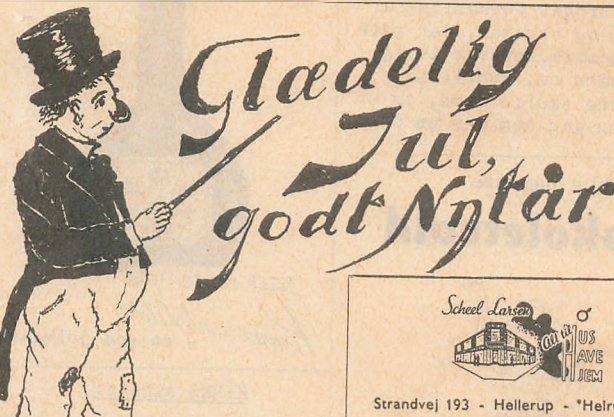 Glædelig
Jul,
godt Nytår
Scheel Larsen
Alt til
HUS
HAVE
HJEM
Strandvej 193 - Hellerup - *Helr